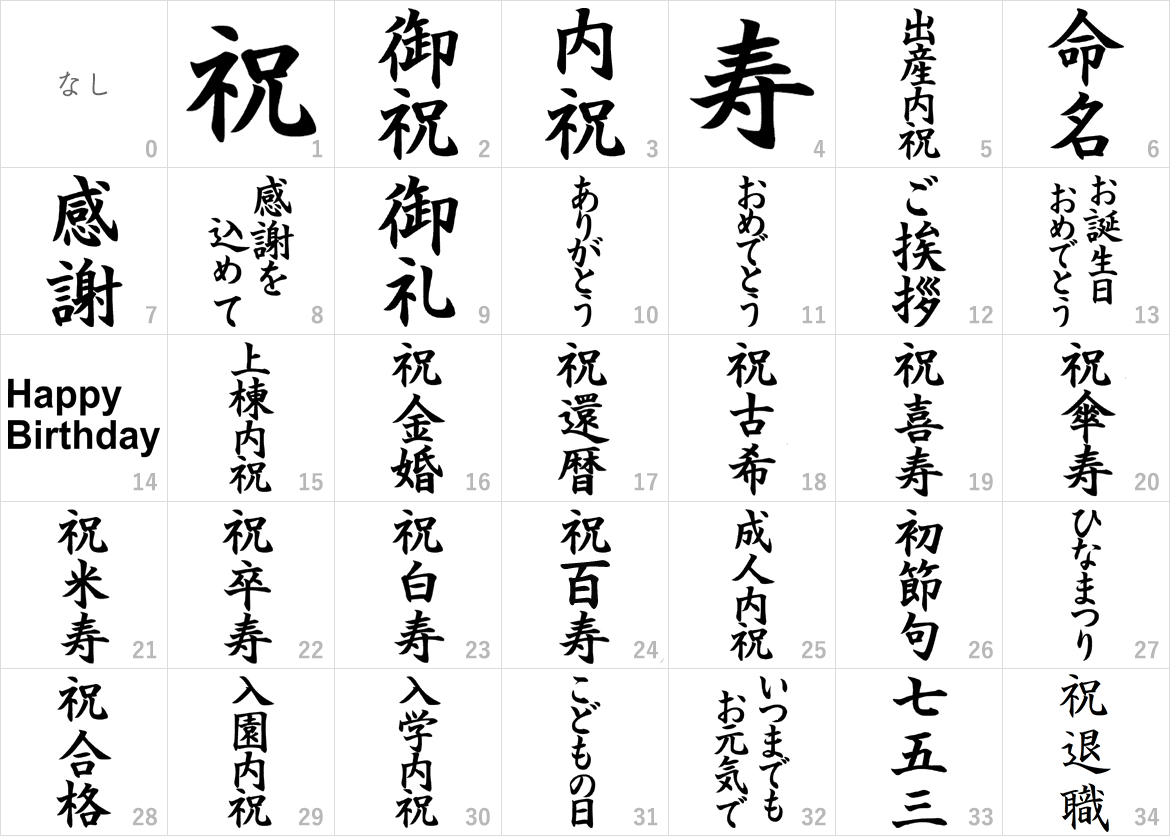 なし
0
祝
1
御祝
2
内祝
3
寿
4
出産内祝
5
命名
6
感謝
7
感謝を
込めて
8
御礼
9
ありがとう
10
おめでとう
11
ご挨拶
12
お誕生日
おめでとう
13
Happy
Birthday
14
上棟内祝
15
祝金婚
16
祝還暦
17
祝古希
18
祝喜寿
19
祝傘寿
20
祝米寿
21
祝卒寿
22
祝白寿
23
祝百寿
24
成人内祝
25
初節句
26
ひなまつり
27
祝合格
28
入園内祝
29
入学内祝
30
こどもの日
31
いつまでも
お元気で
32
七五三
33
祝退職
34